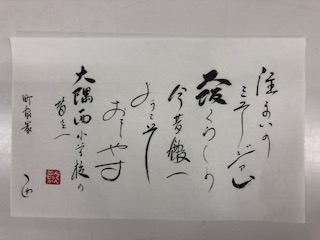 住まいの
ミュージアム
くらしの
今昔館へ
ようこそ
おこしやす
大隅西小学校の
皆さんへ
町家衆